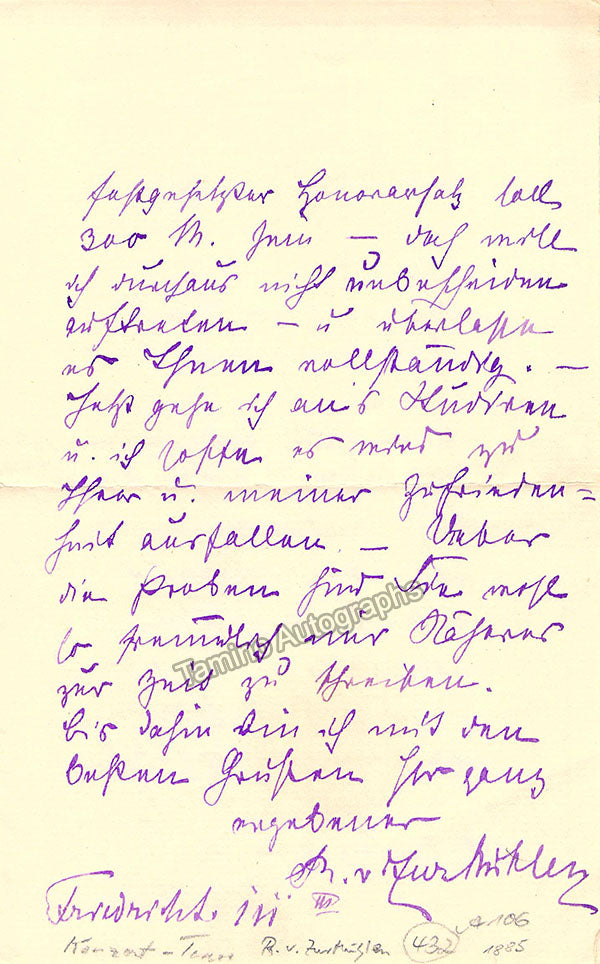 festgesetzter Honorarsatz soll
300 M. sein — doch will
ich durchaus nicht unbescheiden
auftreten — u überlasse
es Ihnen vollständig. —
Jetzt gehe ich an's Studiren
u. ich hoffe es wird zu
Ihrer u. meiner Zufrieden=
heit ausfallen. — Ueber
die Proben sind Sie wohl
so freundlich mir Näheres
zur Zeit zu schreiben.
Bis dahin bin ich mit den
besten Grüßen Ihr ganz
ergebener
R. v. ZurMühlen
III
Konzert - Tenor R. v. Zurmühlen 432 106
1885
Tamino Autographs